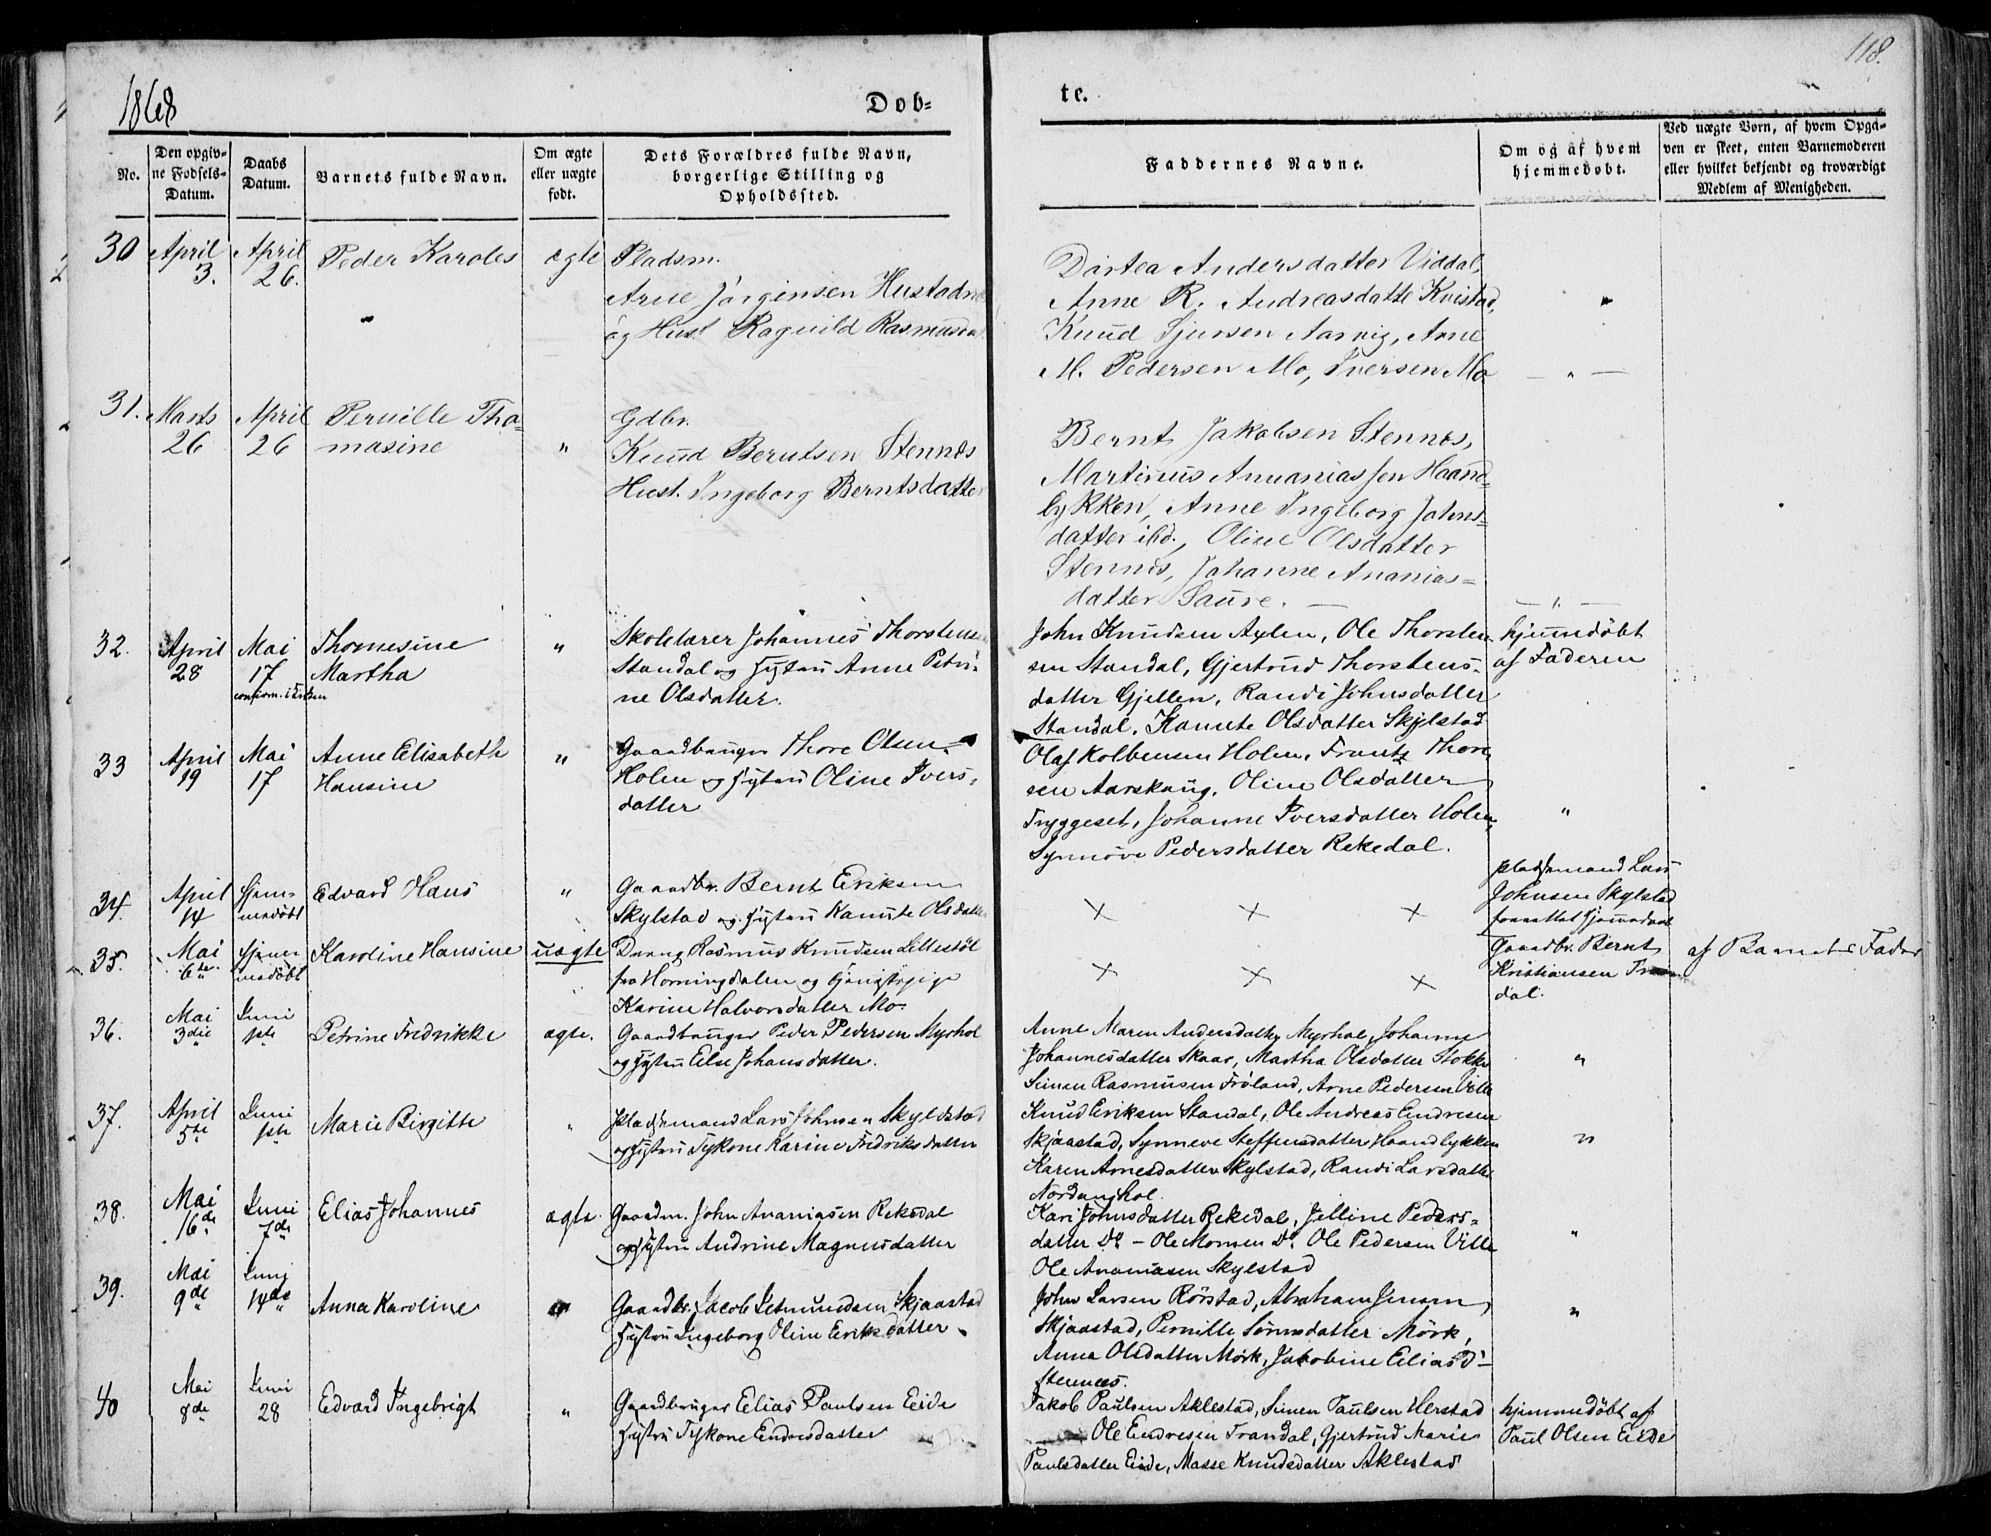 1868
Dob-
te.
118.
No.
Den opgiv-
ne Fodsels-
Datum.
Daabs
Datum.
Barnets fulde Navn.
Om ægte
eller uægte
født.
Dets Forældres fulde Navn,
borgerlige Stilling og
Opholdssted.
Faddernes Navne.
Om og af hvem
hjemmedøbt.
Ved uægte Born, af hvem Opga-
ven er skeet, enten Barnemoderen
eller hvilket bekjendt og troværdigt
Medlem af Menigheden.
30 April 3. April 26. Peder Karoles ægte Pladsm.
Arne Jørgensen Hustadnes
og Hust Ragnild Rasmusda
Dårtea Andersdatter Viddal,
Anne R. Andreasdatte Kvistad,
Knud Sjursen Aarvig, Arne
M. Pedersen Mo, Iversen Mo
31. Marts 26 April 26 Pernille Tho-
masine " Gdbr.
Knud Berntsen Stennes
Hust. Ingeborg Berntsdatter
Bernt Jakobsen Stennes,
Martinus Annaniassen Haand-
lykken, Anne Ingeborg Johns-
datter ibd., Oline Olsdatter
Stennes, Johanne Ananias-
datter Saure.
32. April 28 Mai 17 Thomesine
Martha
confirm. i Kirken
" Skolelærer Johannes Thorstensen
Standal og Hustru Anne Petri-
ne Olsdatter.
John Knudsen Axlen, Ole Thorsten-
sen Standal, Gjertrud Thorstens-
datter Gjellen, Randi Johnsdatter
Standal, Kanute Olsdatter Skylstad
hjemmedøbt
af Faderen
33 April 19 Mai 17 Anne Elisabeth
Hansine " Gaardbruger Thore Olsen
Holen og Hustru Oline Ivers-
datter
Olaf Kolbensen Holen, Frantz Thore-
sen Aarskaug, Oline Olsdatter
Tryggeset, Johanne Iversdatter Holen,
Synnøve Pedersdatter Rekedal.
"
34. April 14 Hjem-
medøbt Edvard Hans " Gaardbr. Bernt Eriksen
Skylstad og Hustru Kanute Olsdatter
× × ×
Pladsemand Lars
Johnsen Skylstad
forrettet Hjemmedaab
35. Mai 6te Hjem-
medøbt Karoline Hansine uægte Dreng Rasmus Knudsen Lillestøl
fra Horningdalen og Tjenestepige
Karine Halvorsdatter Mo.
× × ×
Gaardbr. Bernt
Kristiansen Tran
dal.
af Barnets Fader
36. Mai 3die Juni 1ste Petrine Fredrikke ægte. Gaardbruger Peder Pedersen Myrhol
og Hustru Else Johansdatter.
Anne Maren Andersdatter Myrhol, Johanne
Johannesdatter Skaar, Martha Olsdatter Stokke
Simen Rasmusen Frøland, Arne Pedersen Ville
"
37. April 5te Juni 1ste Marie Birgitte " Pladsemand Lars Johnsen Skylstad
og Hustru Sykone Karine Fredriksdatter
Knud Eriksen Standal, Ole Andreas Endresen
Skjaastad, Synneve Steffensdatter Haandlykken
Karen Arnesdatter Skylstad, Randi Larsdatter
Nordanghol.
"
38. Mai 16de Juni 7de Elias Johannes ægte. Gaardm. John Ananiasen Rekedal
og Hustru Andrine Magnusdatter
Kari Johnsdatter Rekedal, Jelline Peders-
datter Do - Ole Monsen Do. Ole Pedersen Ville
Ole Ananiasen Skylstad
"
39. Mai 9de Juni 14de Anna Karoline " Gaardbr. Jacob Jetmundsen Skjaastad
Hustru Ingeborg Oline Eriksdatter
John Larsen Rørstad, Abraham Jensen,
Skjaastad, Pernille Sørensdatter Mørk,
Anna Olsdatter Mørk, Jakobine Eliasd-
Stennes.
"
40 Mai 8de Juni 28 Edvard Ingebrigt " Gaardbruger Elias Paulsen Eide
Hustru Sykone Endresdatter
Jakob Paulsen Aklestad, Simen Paulsen Herstad
Ole Endresen Trandal, Gjertrud Marie
Paulsdatter Eide, Masse Knudsdatter Aklestad
hjemmedøbt af
Paul Olsen Eide